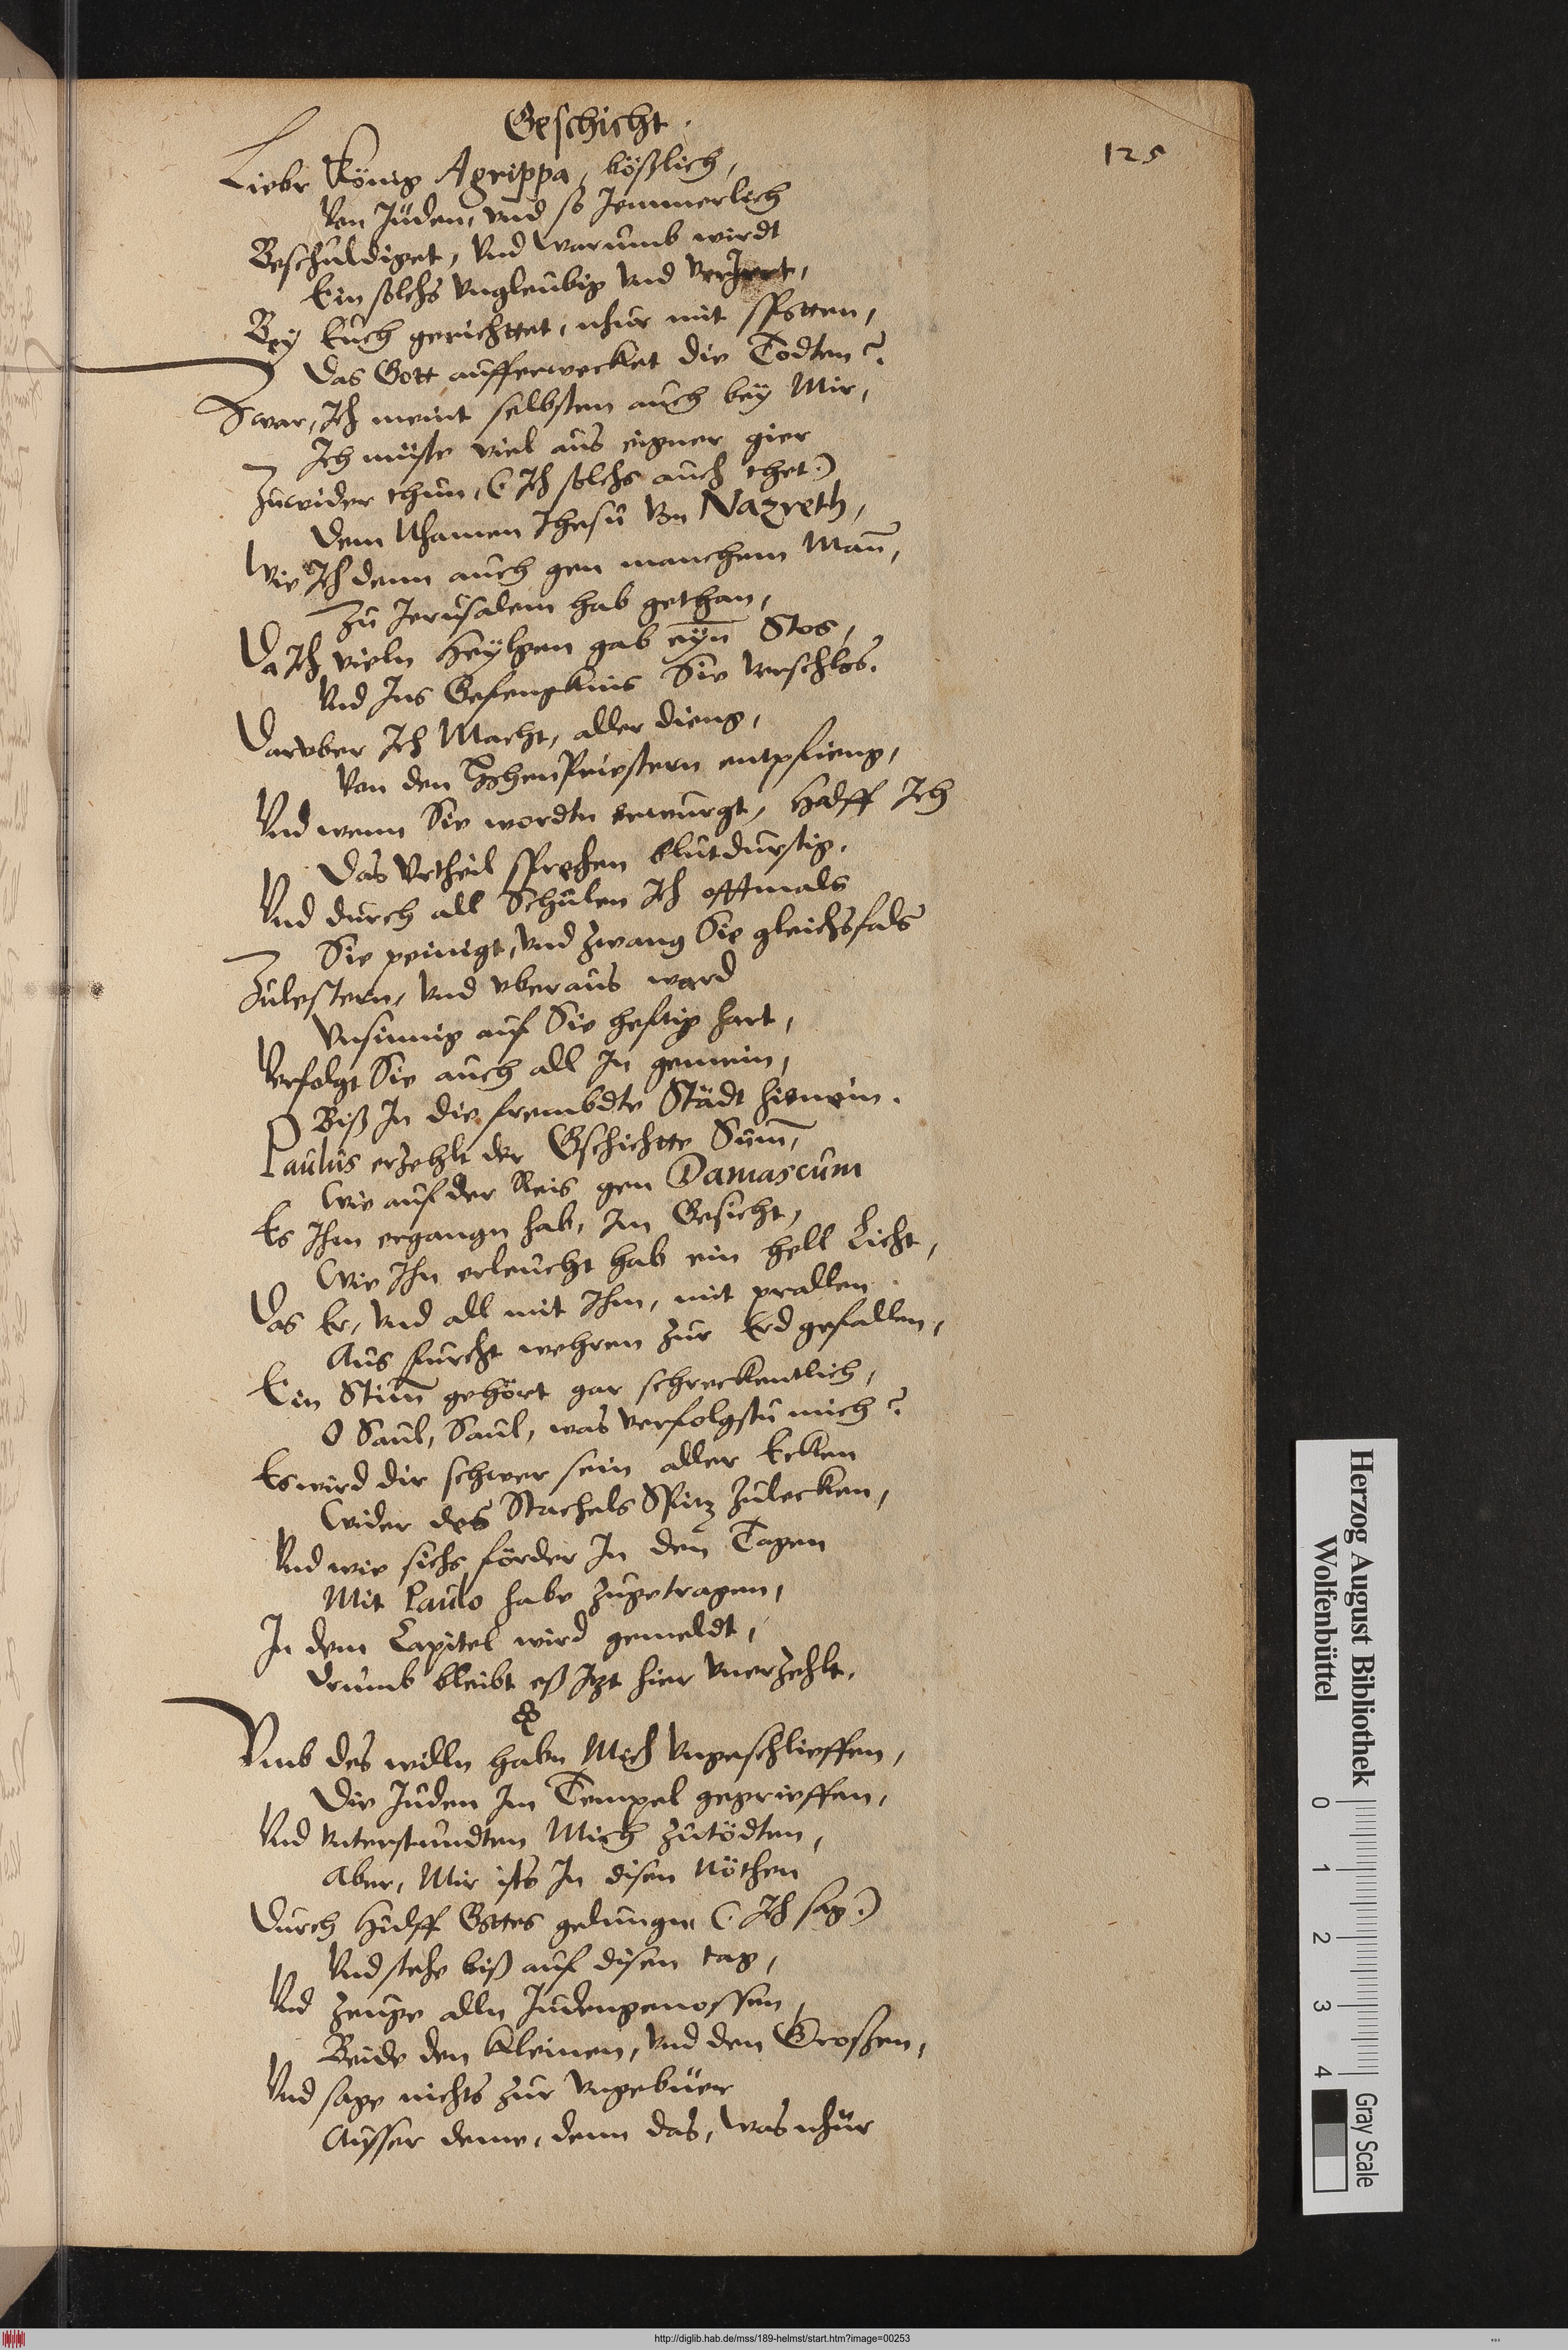 Geschicht.
125
Lieber König Agrippa, bößlich,
Von Jüden, vnd so Jemmerlich
Beschuldiget, Vnd warumb wirdt
Ein solchs vngleubig vnd
Bey Euch gerichttet, nhur mit spotten,
Das Gott aufferwecket die Todten?
Zwar, Ich meint selbsten auch bey Mir,
Ich müste viel aus eigner gier
Zuwider thun, (Ich solchs auch thet:)
Dem Nhamen Jhesu von Nazreth,
Wie Ich denn auch gen manchem Man̄,
Zu Jerusalem hab gethan,
Da Ich vieln Heylgen gab eyn̄ Stos,
Vnd Ins Gefengknis Sie verschlos.
Daruber Ich Macht, aller dieng,
Von den HohenPriestern entpfieng,
Vnd wenn Sie wordtn erwurgt, Halff Ich
Das Vrtheil sprechen blutdurstig.
Vnd durch all Schulen Ich offtmals
Sie peinigt, vnd zwang Sie gleichsfals
Zulestern, vnd vberaus ward
Vnsinnig auf Sie hefftig hart,
Verfolgt Sie auch all In gemein,
Biß In die frembdte Städt hienein.
Paulus erzehlt der Gschichtte Sum̄,
Wie auf der Reis gen Damascum
Es Ihm ergangn hab, Im Gesicht,
Wie Ihn erleucht hab ein hell Licht,
Das Er, vnd all mit Ihm, mit prallen
Aus furcht wehren zur Erd gefallen,
Ein Stim̄ gehört gar schreckentlich,
O Saul, Saul, was verfolgstu mich?
Es wird dir schwer sein aller Ecken
Wider des Stachels Spitz zulecken,
Vnd wie sichs förder In den Tagen
Mit Paulo habe zugetragen,
In dem Capitel wird gemeldt,
Drumb bleibt eß Itzt hier vnerzehlt.
Vmb des willn habn Mich vngeschlieffen,
Die Juden Im Tempel gegrieffen,
Vnd vnterstundten Mich zutödten,
Aber, Mir ists In disen Nöthen
Durch Hülff Gottes gelungn (Ich sag:)
Vnd stehe biß auf disen tag,
Vnd zeuge alln Judengenossen,
Beide den Kleinen, vnd den Großen,
Vnd sage nichts zur vngebüer
Ausser deme, denn das, was nhur
Herzog August Bibliothek
Wolfenbüttel
0 1 2 3 4
Gray Scale
http://diglib.hab.de/mss/189-helmst/start.htm?image=00253